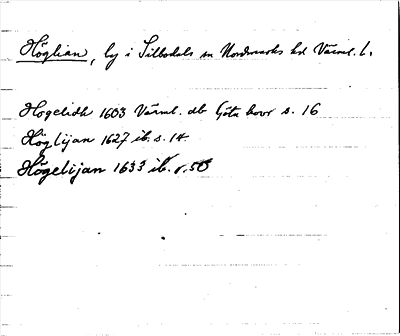 Höglian, by i Silbodals sn Nordmarks hd Värml. l.
Hogelidh 1603 Värml. db Göta hovr s. 16
Höglijan 1627 ib. s. 14.
Högelijan 1633 ib. s. 50